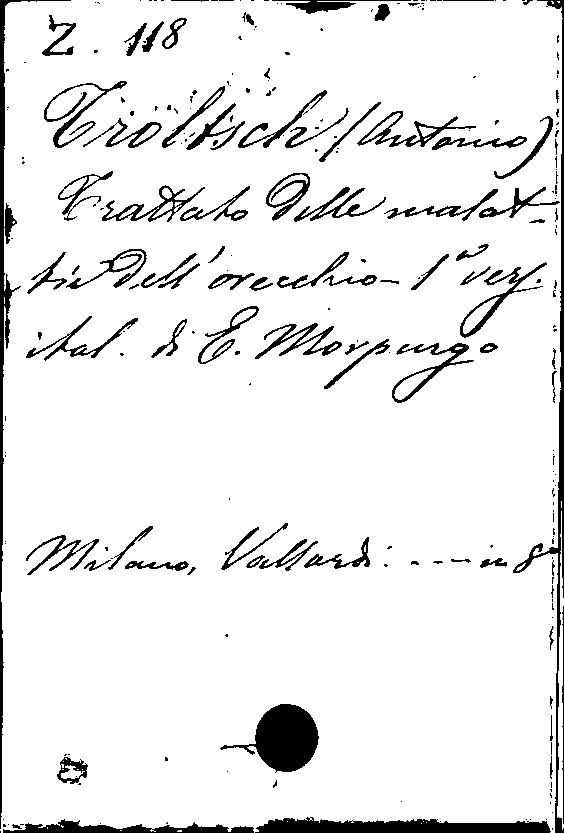 Z. 118
Tröltsch (Antonio)
Trattato delle malat-
tie dell'orecchio - 1a vers.
ital. di E. Morpurgo
Milano, Vallardi. ---- in 8°